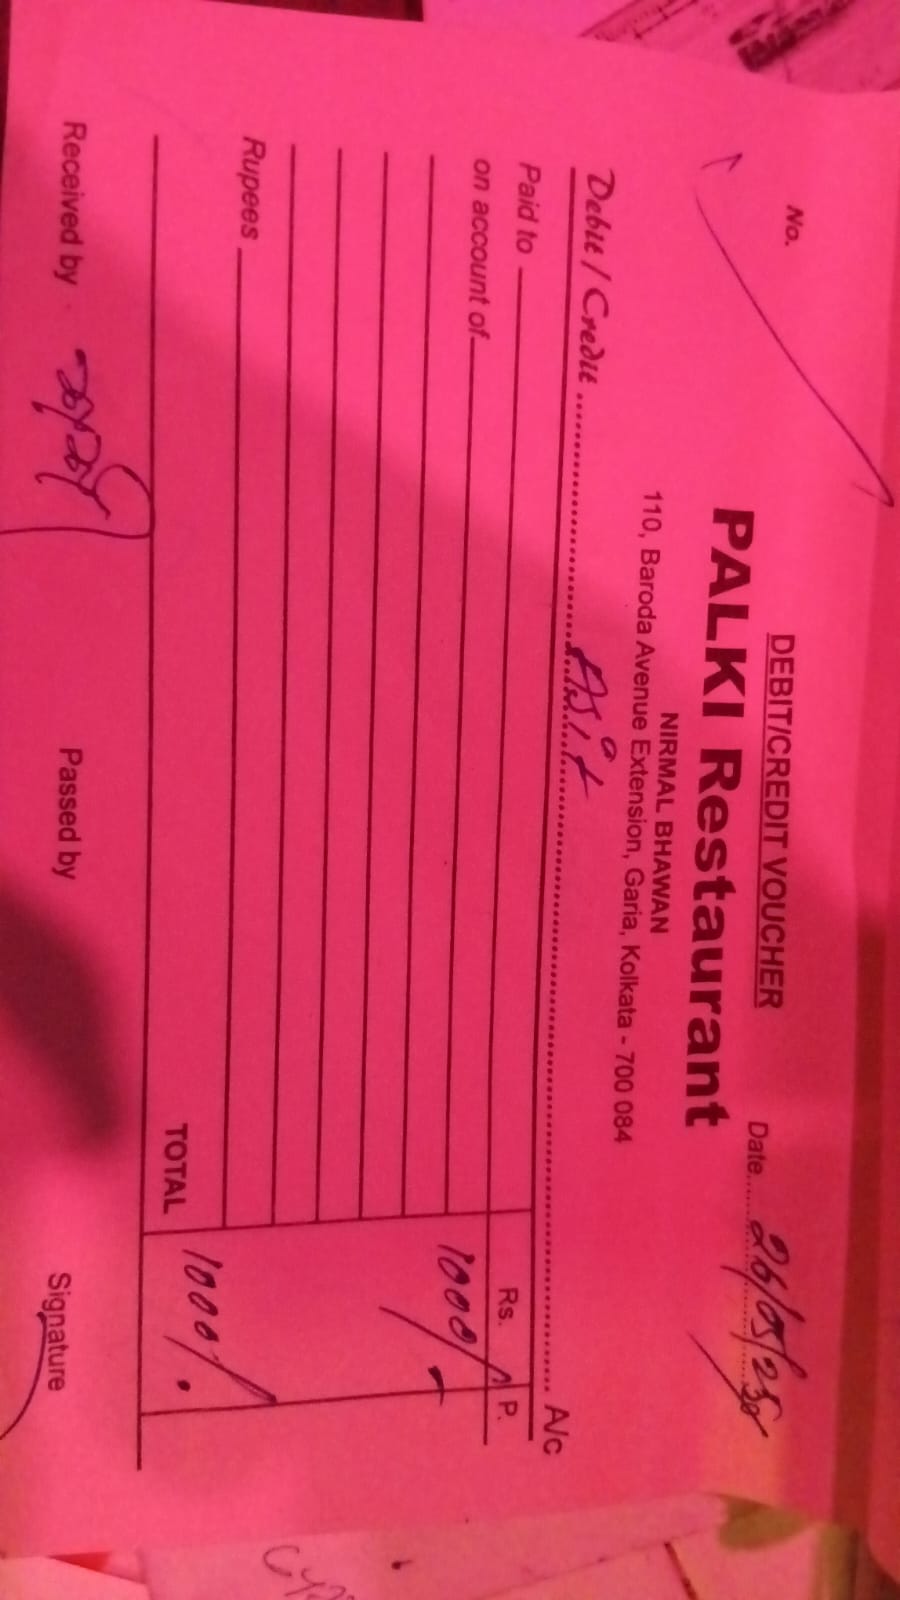 DEBIT/CREDIT VOUCHER
No.
Date
PALKI Restaurant
NIRMAL BHAWAN
110, Baroda Avenue Extension, Garia, Kolkata - 700 084
Debit / Credit Asit A/c
Paid to Rs. P.
on account of 1000/-
Rupees
TOTAL 1000/-
Received by Passed by Signature